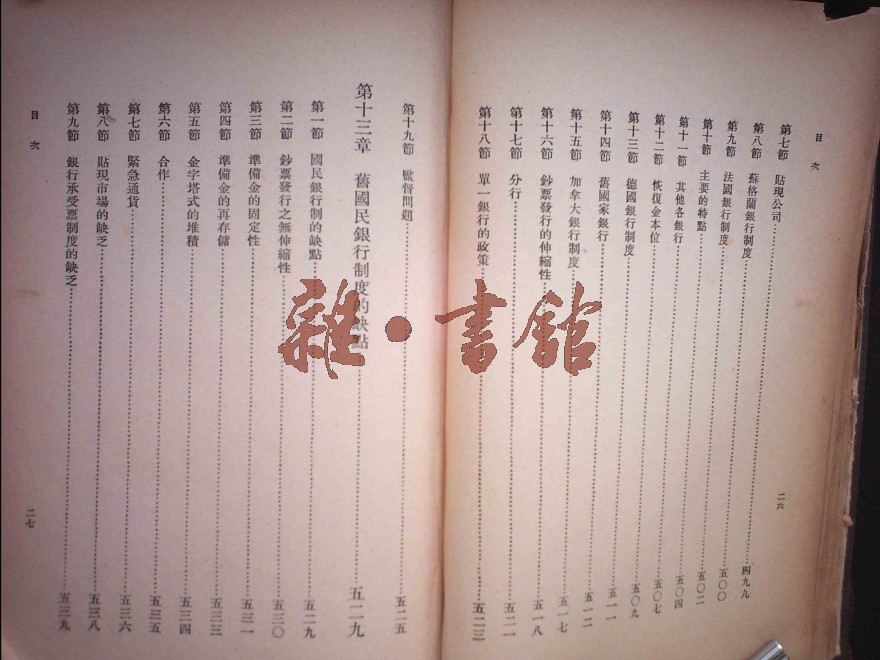 目次
第七節 貼現公司
第八節 蘇格蘭銀行制度 四九九
第九節 法國銀行制度 五〇〇
第十節 主要的特點 五〇二
第十一節 其他各銀行 五〇四
第十二節 恢復金本位 五〇七
第十三節 德國銀行制度 五〇九
第十四節 舊國家銀行 五一一
第十五節 加拿大銀行制度 五一二
第十六節 鈔票發行的伸縮性 五一七
第十七節 分行 五一八
第十八節 單一銀行的政策 五二一
五二三
二六
第十九節 監督問題 五二五
第十三章 舊國民銀行制度的缺點 五二九
第一節 國民銀行制的缺點 五二九
第二節 鈔票發行之無伸縮性 五三〇
第三節 準備金的固定性 五三一
第四節 準備金的再存儲 五三三
第五節 金字塔式的堆積 五三四
第六節 合作 五三五
第七節 緊急通貨 五三六
第八節 貼現市場的缺乏 五三八
第九節 銀行承受票制度的缺乏 五三九
目次
二七
雜·書館